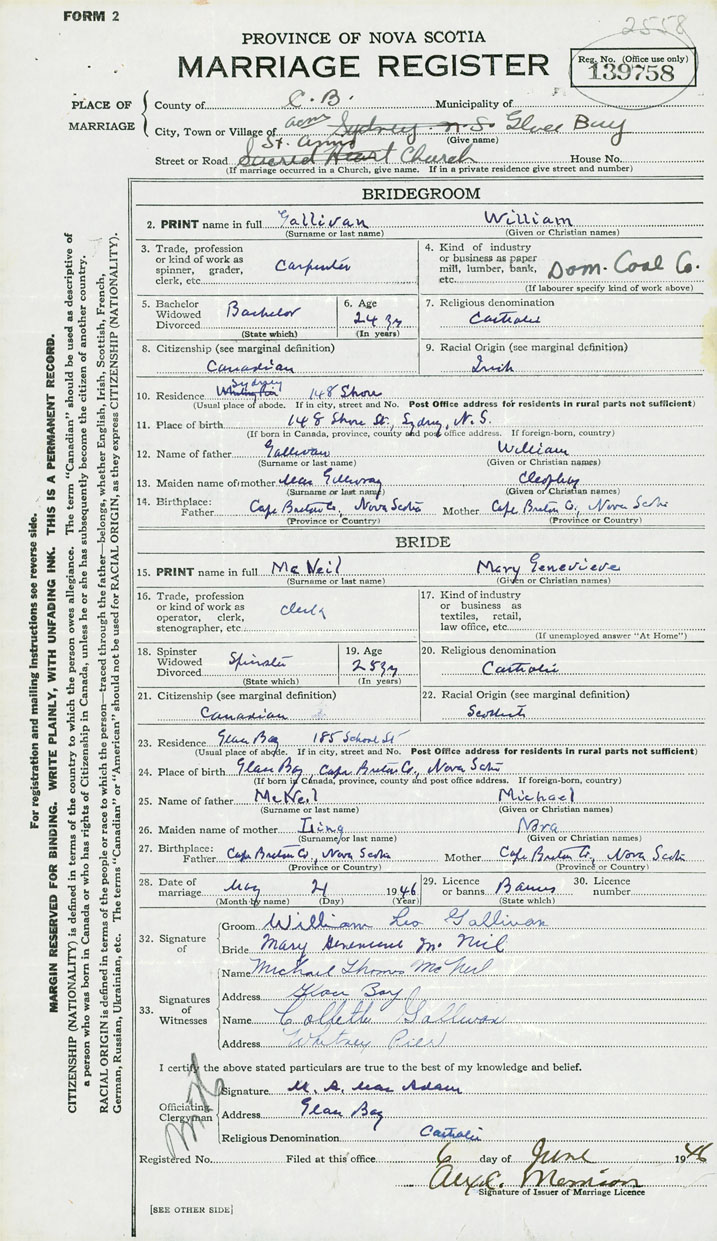 FORM 2
2558
PROVINCE OF NOVA SCOTIA
MARRIAGE REGISTER
Reg. No. (Office use only)
139758
PLACE OF MARRIAGE
County of C.B. Municipality of
City, Town or Village of Sydney N.S. Glace Bay
(Give name)
St. Anns
Street or Road Sacred Heart Church House No.
(If marriage occurred in a Church, give name. If in a private residence give street and number)
BRIDEGROOM
2. PRINT name in full Gallivan William
(Surname or last name) (Given or Christian names)
3. Trade, profession or kind of work as spinner, grader, clerk, etc. Carpenter
4. Kind of industry or business as paper mill, lumber, bank, etc. Dom. Coal Co.
(If labourer specify kind of work above)
5. Bachelor Widowed Divorced Bachelor
(State which)
6. Age 24 yr
(In years)
7. Religious denomination Catholic
8. Citizenship (see marginal definition) Canadian
9. Racial Origin (see marginal definition) Irish
Sydney
10. Residence 148 Shore
(Usual place of abode. If in city, street and No. Post Office address for residents in rural parts not sufficient)
11. Place of birth 148 Shore St., Sydney, N.S.
(If born in Canada, province, county and post office address. If foreign-born, country)
12. Name of father Gallivan William
(Surname or last name) (Given or Christian names)
13. Maiden name of mother Mac Gillivray
(Surname or last name) (Given or Christian names)
14. Birthplace: Father Cape Breton Co., Nova Scotia Mother Cape Breton Co., Nova Scotia
(Province or Country) (Province or Country)
BRIDE
15. PRINT name in full McNeil Mary Genevieve
(Surname or last name) (Given or Christian names)
16. Trade, profession or kind of work as operator, clerk, stenographer, etc. Clerk
17. Kind of industry or business as textiles, retail, law office, etc.
(If unemployed answer "At Home")
18. Spinster Widowed Divorced Spinster
(State which)
19. Age 25 yr
(In years)
20. Religious denomination Catholic
21. Citizenship (see marginal definition) Canadian
22. Racial Origin (see marginal definition) Scottish
23. Residence Glace Bay 185 School St
(Usual place of abode. If in city, street and No. Post Office address for residents in rural parts not sufficient)
24. Place of birth Glace Bay Cape Breton Co., Nova Scotia
(If born in Canada, province, county and post office address. If foreign-born, country)
25. Name of father McNeil Michael
(Surname or last name) (Given or Christian names)
26. Maiden name of mother
(Surname or last name) (Given or Christian names)
27. Birthplace: Father Cape Breton Co., Nova Scotia Mother Cape Breton Co., Nova Scotia
(Province or Country) (Province or Country)
28. Date of marriage May 21 1946
(Month by name) (Day) (Year)
29. Licence or banns Banns
(State which)
30. Licence number
32. Signature of
Groom William Leo Gallivan
Bride Mary Genevieve Mc Neil
33. Signatures of Witnesses
Name Michael Thomas McNeil
Address Glace Bay
Name Collette Gallivan
Address Whitney Pier
I certify the above stated particulars are true to the best of my knowledge and belief.
Officiating Clergyman
Signature M. A. Mac Adam
Address Glace Bay
Religious Denomination Catholic
Registered No. Filed at this office 6 day of June 1946
Alex C. Morrison
Signature of Issuer of Marriage Licence
[SEE OTHER SIDE]
For registration and mailing instructions see reverse side.
MARGIN RESERVED FOR BINDING. WRITE PLAINLY, WITH UNFADING INK. THIS IS A PERMANENT RECORD.
CITIZENSHIP (NATIONALITY) is defined in terms of the country to which the person owes allegiance. The term "Canadian" should be used as descriptive of
a person who was born in Canada or who has rights of Citizenship in Canada, unless he or she has subsequently become the citizen of another country.
RACIAL ORIGIN is defined in terms of the people or race to which the person—traced through the father—belongs, whether English, Irish, Scottish, French,
German, Russian, Ukrainian, etc. The terms "Canadian" or "American" should not be used for RACIAL ORIGIN, as they express CITIZENSHIP (NATIONALITY).